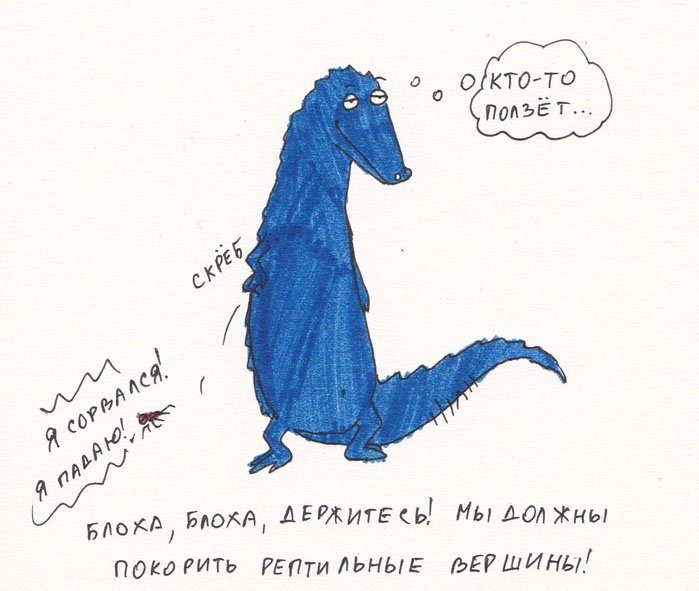 КТО-ТО
ПОЛЗЁТ...
СКРЁБ
Я СОРВАЛСЯ!
Я ПАДАЮ!
БЛОХА, БЛОХА, ДЕРЖИТЕСЬ! МЫ ДОЛЖНЫ
ПОКОРИТЬ РЕПТИЛЬНЫЕ ВЕРШИНЫ!